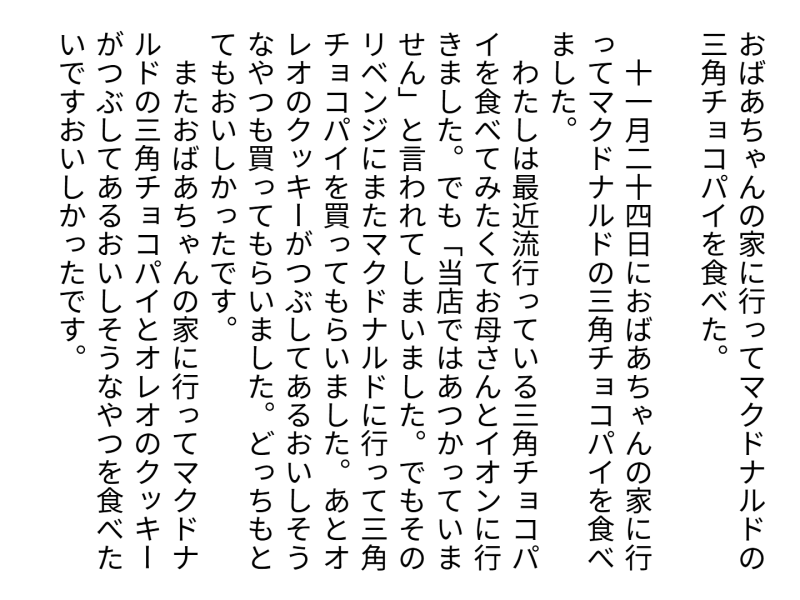 おばあちゃんの家に行ってマクドナルドの
三角チョコパイを食べた。
　十一月二十四日におばあちゃんの家に行
ってマクドナルドの三角チョコパイを食べ
ました。
　わたしは最近流行っている三角チョコパ
イを食べてみたくてお母さんとイオンに行
きました。でも「当店ではあつかっていま
せん」と言われてしまいました。でもその
リベンジにまたマクドナルドに行って三角
チョコパイを買ってもらいました。あとオ
レオのクッキーがつぶしてあるおいしそう
なやつも買ってもらいました。どっちもと
てもおいしかったです。
　またおばあちゃんの家に行ってマクドナ
ルドの三角チョコパイとオレオのクッキー
がつぶしてあるおいしそうなやつを食べた
いですおいしかったです。